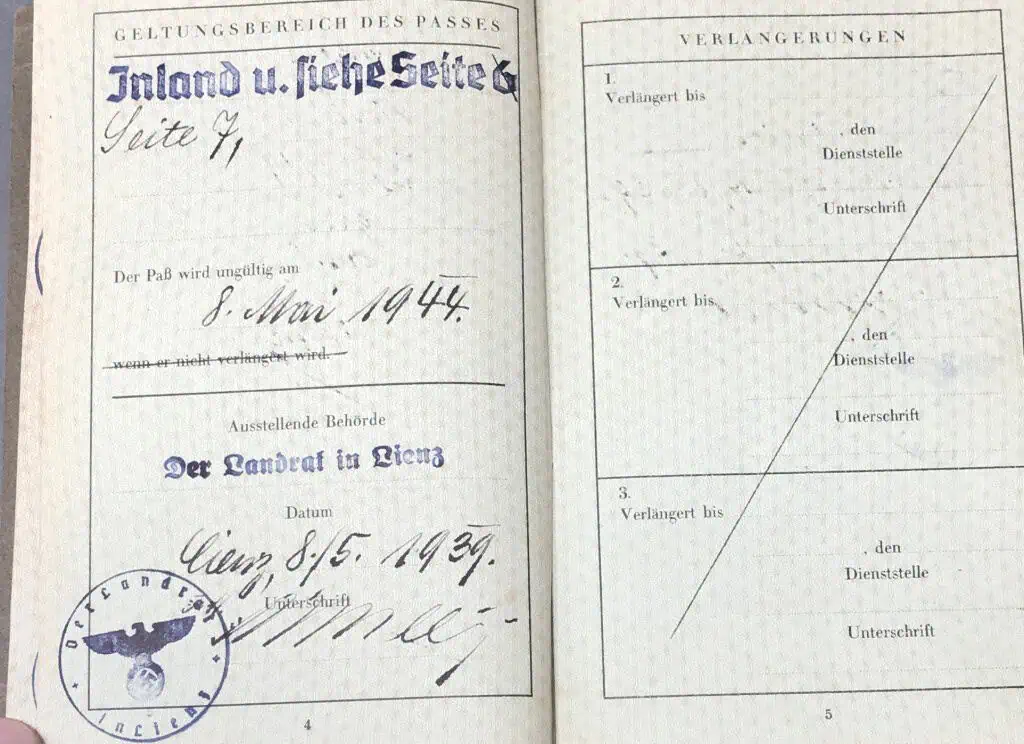 GELTUNGSBEREICH DES PASSES
Inland u. siehe Seite 6
Seite 7,
Der Paß wird ungültig am
8. Mai 1944.
wenn er nicht verlängert wird.
Ausstellende Behörde
Der Landrat in Lienz
Datum
Lienz, 8./5. 1939.
Unterschrift
Der Landrat
in Lienz
4
VERLÄNGERUNGEN
1.
Verlängert bis
, den
Dienststelle
Unterschrift
2.
Verlängert bis
, den
Dienststelle
Unterschrift
3.
Verlängert bis
, den
Dienststelle
Unterschrift
5